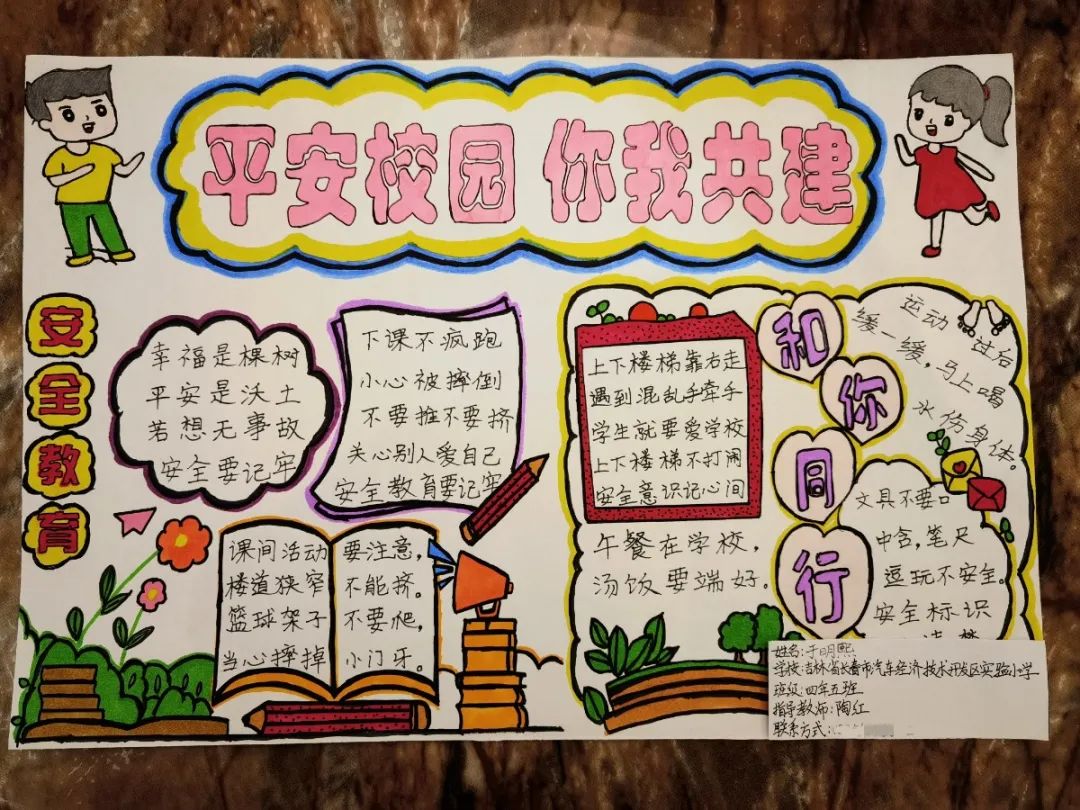 平安校园 你我共建
安全教育
幸福是棵树
平安是沃土
若想无事故
安全要记牢
下课不疯跑
小心被摔倒
不要推不要挤
关心别人爱自己
安全教育要记牢
课间活动要注意，
楼道狭窄不能挤。
篮球架子不要爬，
当心摔掉小门牙。
上下楼梯靠右走
遇到混乱手牵手
学生就要爱学校
上下楼梯不打闹
安全意识记心间
午餐在学校，
汤饭要端好。
和你同行
运动过后
缓一缓，马上喝
水伤身体。
文具不要口
中含，笔尺
逗玩不安全。
安全标识
姓名：于明熙
学校：吉林省长春市汽车经济技术开发区实验小学
班级：四年五班
指导教师：陶红
联系方式：